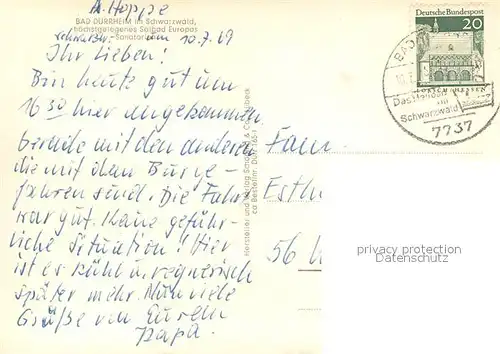 A. Hoppe
BAD DÜRRHEIM im Schwarzwald,
höchstgelegenes Solbad Europas
Sanatorium
am 10.7.69
Ihr Lieben!
Bin heute gut um
16 30 hier angekommen
gerade mit den anderen
die mit dem Bus ge-
fahren sind. Die Fahrt
war gut. Keine gefähr-
liche Situation! Hier
ist er kühl u. regnerisch
später mehr. Nun viele
Grüße von Eurem
Papa.
Hersteller und Verlag
Bestellnr.
Deutsche Bundespost
20
LORSCH/HESSEN
BAD
Das
Schwarzwald
7737
Fam.
Esth
56
privacy protection
Datenschutz